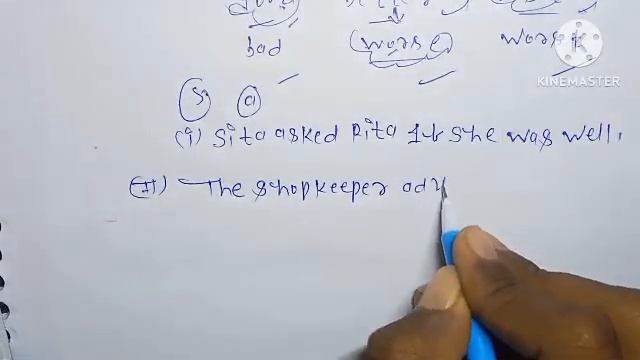 bad (worse) worst
K
KINEMASTER
5 a
(i) Sita asked Rita If she was well.
(II) The shopkeeper adv